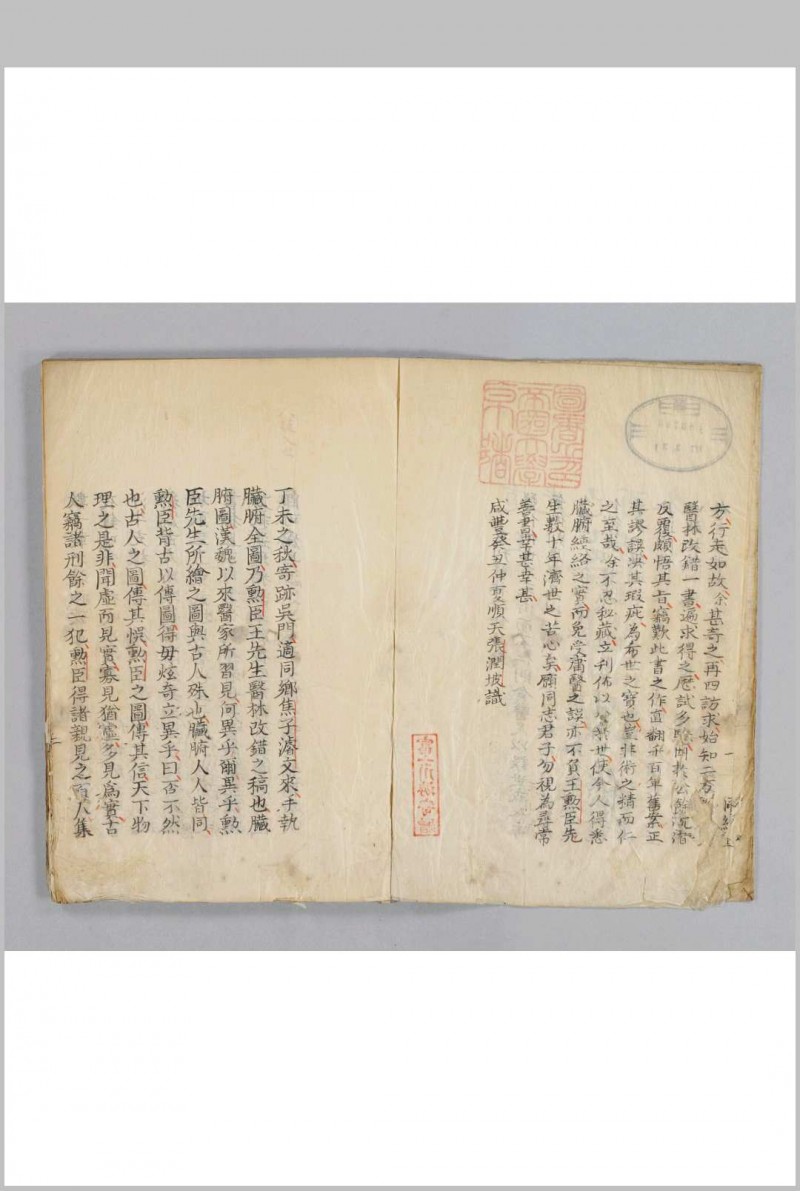 方行走如故余甚奇之再四訪求始知二方
醫林改錯一書遍求得之屢試多驗因於公餘沉潛
反覆頗悟其旨竊歎此書之作直翻千百年舊案正
其謬誤決其瑕疵為希世之寶也豈非術之精而仁
之至哉余不忍秘藏立刊佈以公於世使令人得悉
臟腑經絡之實而免受庸醫之誤亦不負王勲臣先
生數十年濟世之苦心矣願同志君子勿視為尋常
善書幸甚幸甚
咸豐癸丑仲夏順天張潤坡識
丁未之秋寄跡吳門適同鄉焦子濬文來手執
臟腑全圖乃勲臣王先生醫林改錯之稿也臟
腑圖漢魏以來醫家所習見何異乎爾異乎勲
臣先生所繪之圖與古人殊也臟腑人人皆同
勲臣背古以傳圖得毋炫奇立異乎曰否不然
也古人之圖傳其悞勲臣之圖傳其信天下物
理之是非聞虛而見實寡見猶虛多見為實古
人竊諸刑餘之一犯勲臣得諸親見之百人集